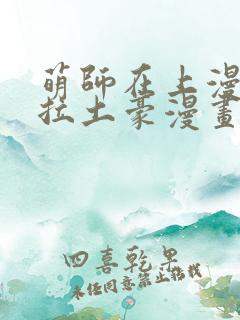 萌師在上漫
拉土豪漫畫
四喜乾果
未經同意禁止轉載